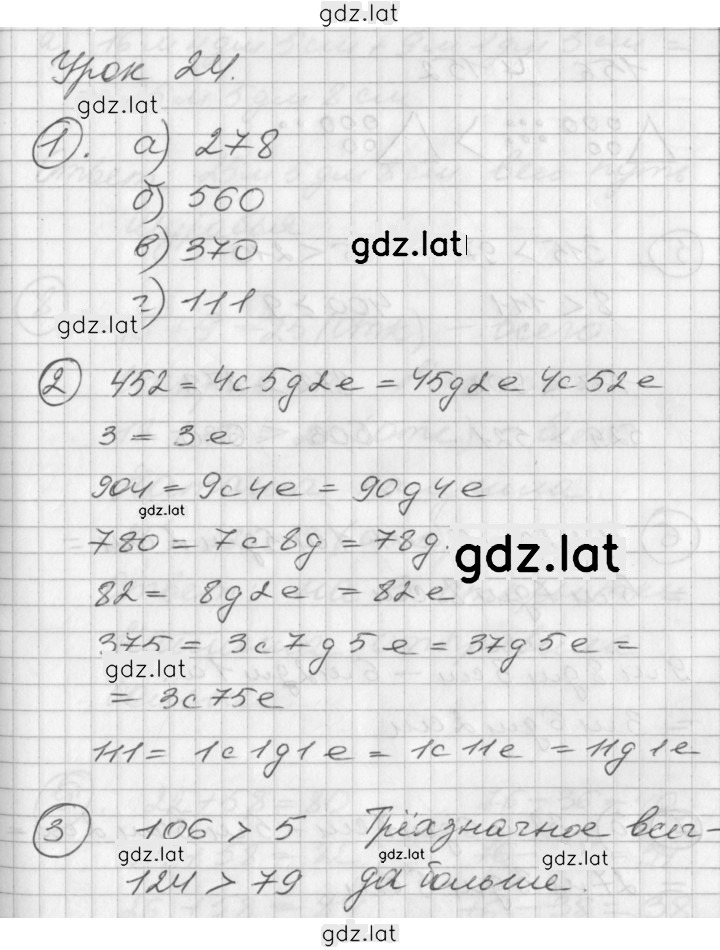 gdz.lat
Урок 24.
gdz.lat
1. а) 278
б) 560
в) 370
gdz.lat
г) 111
gdz.lat
2 452 = 4с5д2е = 45д2е 4с52е
3 = 3е
904 = 9с4е = 90д4е
gdz.lat
780 = 7с8д = 78д.
gdz.lat
82 = 8д2е = 82е
375 = 3с7д5е = 37д5е =
gdz.lat
= 3с75е
111 = 1с1д1е = 1с11е = 11д1е
3 106 > 5 Трёхзначное всег-
gdz.lat gdz.lat gdz.lat
124 > 79 да больше.
gdz.lat